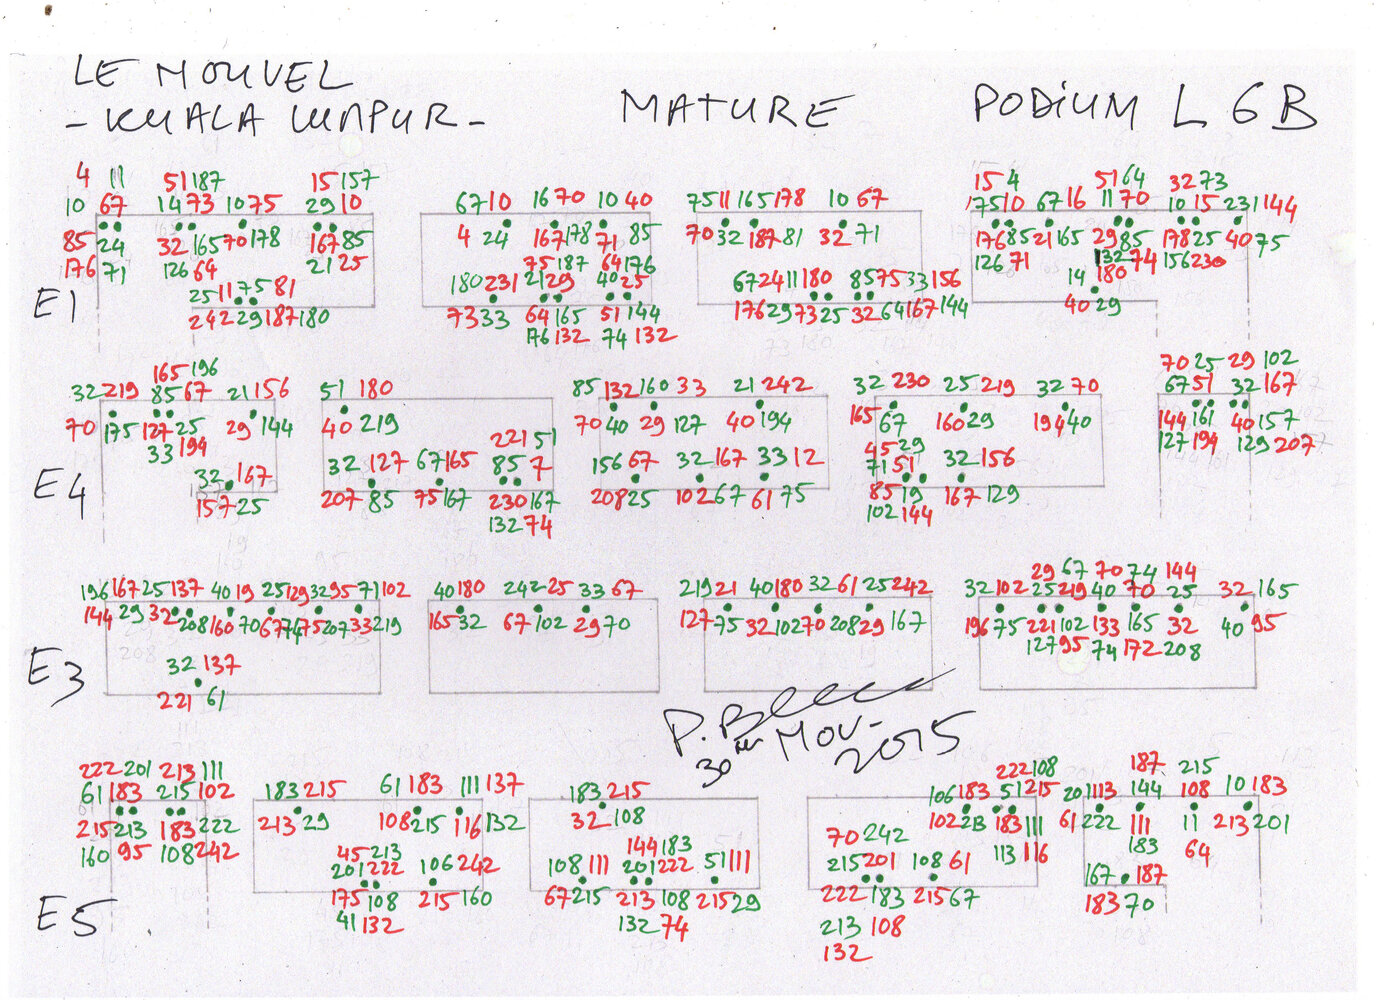 LE NOUVEL
- KUALA LUMPUR - MATURE PODIUM L 6 B
4 11 51 187 15 157
10 67 14 73 10 75 29 10
85 24 32 165 70 178 167 85
176 71 126 64 21 25
25 11 75 81
242 29 187 180
67 10 16 70 10 40
4 24 167 178 71 85
75 187 64 176
180 231 21 29 40 25
73 33 64 165 51 144
176 132 74 132
75 11 165 178 10 67
70 32 187 81 32 71
67 24 11 180 85 75 33 156
176 29 73 25 32 64 167 144
15 4 51 64 32 73
175 10 67 16 11 70 10 15 231 144
176 85 21 165 29 85 178 25 40 75
126 71 132 74 156 230
14 180
40 29
E1
165 196
32 219 85 67 21 156
70 175 127 25 29 144
33 194
32 167
157 25
51 180
40 219
221 51
32 127 67 165 85 7
207 85 75 167 230 167
132 74
85 132 160 33 21 242
70 40 29 127 40 194
156 67 32 167 33 12
208 25 102 67 61 75
32 230 25 219 32 70
165 67 160 29 194 40
45 29
71 51 32 156
85 19 167 129
102 144
70 25 29 102
67 51 32 167
144 161 40 157
127 194 129 207
E4
196 167 25 137 40 19 25 129 32 95 71 102
144 29 32 208 160 70 67 74 75 207 33 219
32 137
221 61
40 180 242 25 33 67
165 32 67 102 29 70
219 21 40 180 32 61 25 242
127 75 32 102 70 208 29 167
29 67 70 74 144
32 102 25 219 40 70 25 32 165
196 75 221 102 133 165 32 40 95
127 95 74 172 208
E3
30 NOV - 2015
222 201 213 111
61 183 215 102
215 213 183 222
160 95 108 242
183 215 61 183 111 137
213 29 108 215 116 132
45 213
201 222 106 242
175 108 215 160
41 132
183 215
32 108
144 183
108 111 201 222 51 111
67 215 213 108 215 29
132 74
222 108
106 183 51 215
102 213 183 111
113 116
70 242
215 201 108 61
222 183 215 67
213 108
132
187 215
201 113 144 108 10 183
61 222 111 11 213 201
183 64
167 187
183 70
E5